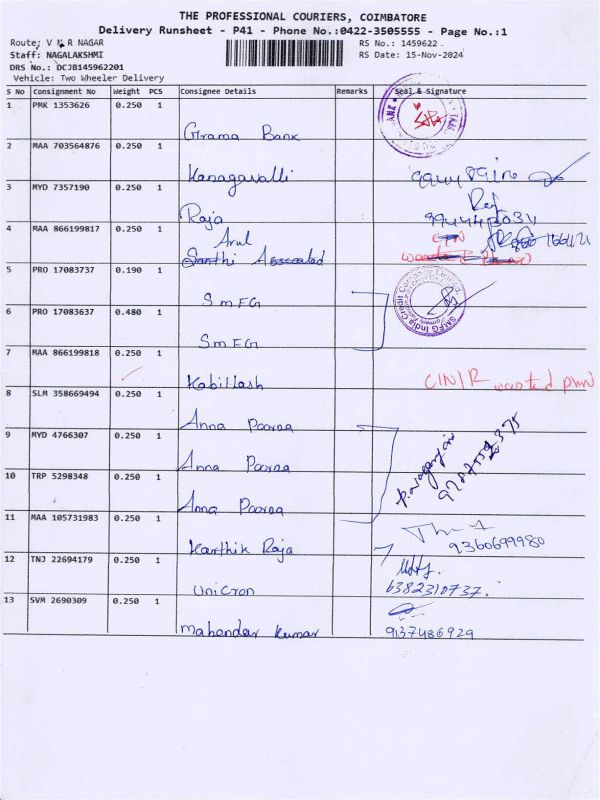 THE PROFESSIONAL COURIERS, COIMBATORE
Delivery Runsheet - P41 - Phone No.:0422-3505555 - Page No.:1
Route: V N R NAGAR RS No.: 1459622
Staff: NAGALAKSHMI RS Date: 15-Nov-2024
DRS No.: DCJB145962201
Vehicle: Two Wheeler Delivery
S No Consignment No Weight PCS Consignee Details Remarks Seal & Signature
1 PMK 1353626 0.250 1
Grama Bank
2 MAA 703564876 0.250 1
Kanagavalli
3 MYD 7357190 0.250 1
Raja
4 MAA 866199817 0.250 1
Arul
5 PRO 17083737 0.190 1
SMFG
SMFG India Credit
6 PRO 17083637 0.480 1
SMFG
7 MAA 866199818 0.250 1
Kabillash CIN/R wanted
8 SLM 358669494 0.250 1
Anna Poorna
9 MYD 4766307 0.250 1
Anna Poorna
10 TRP 5298348 0.250 1
Anna Poorna
11 MAA 105731983 0.250 1
Karthik Raja 9360699980
12 TNJ 22694179 0.250 1
Unicron 6382310737.
13 SVM 2690309 0.250 1
Mahendar Kumar 9137486929